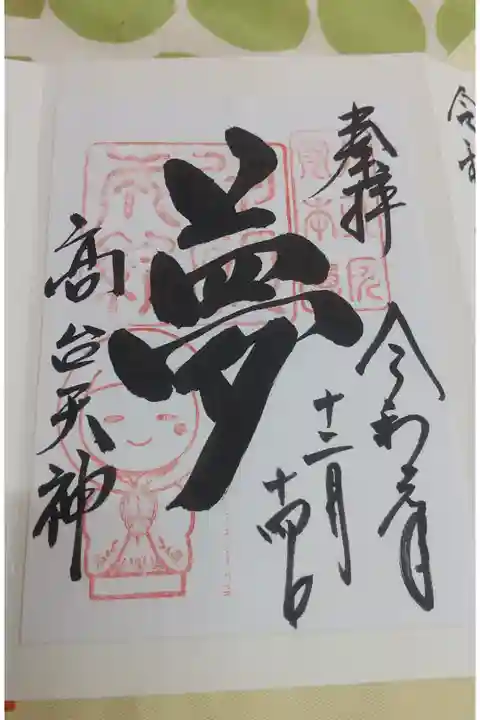 奉拝
令和元年
十二月
十四日
夢
高台天神
令和